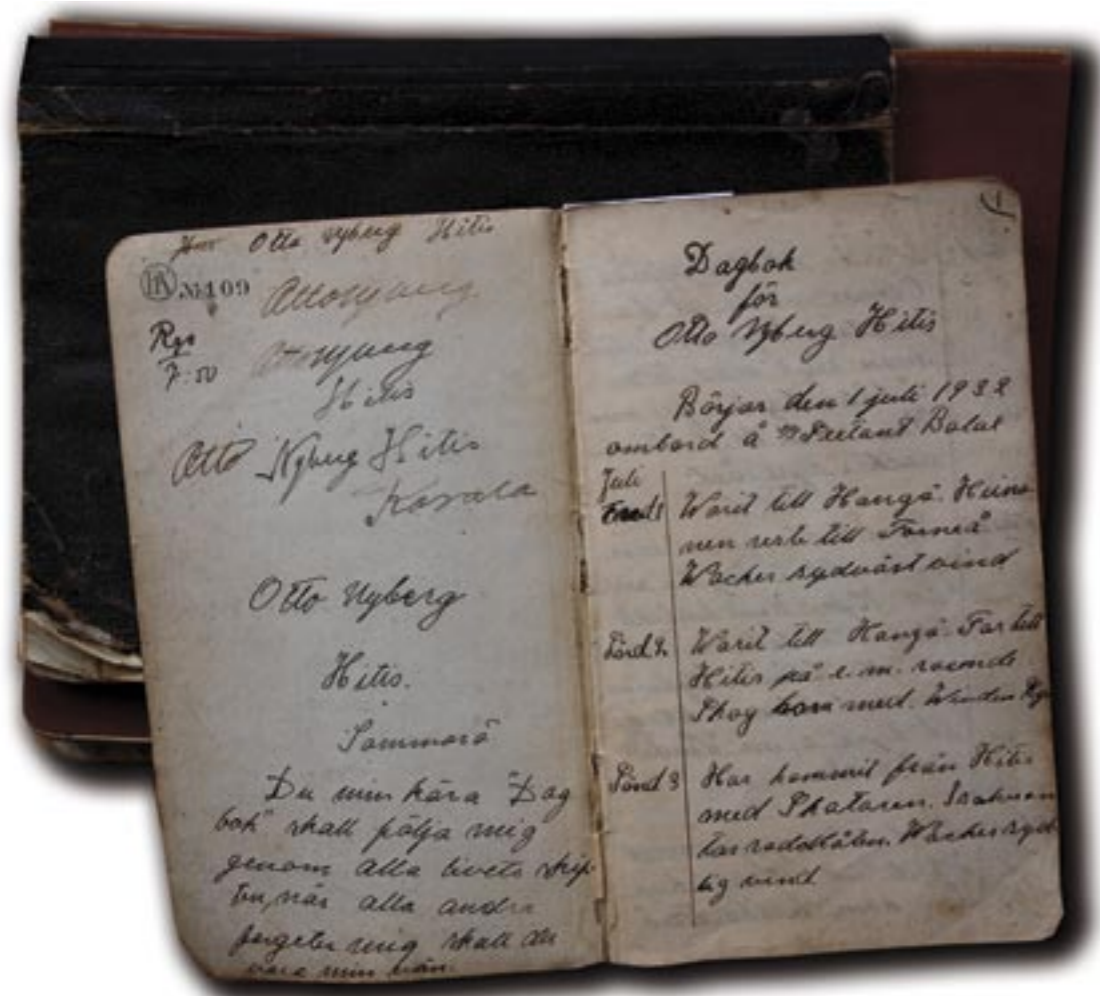 Otto Nyberg Hitis
№109
Otto Nyberg
Rys
7:50
Otto Nyberg
Hitis
Otto Nyberg Hitis
Kasala
Otto Nyberg
Hitis.
Sommarö
Du min kära "Dag
bok" skall följa mig
genom alla livets skif-
ten, när alla andra
forgeter mig skall du
vara min vän.
1
Dagbok
för
Otto Nyberg Hitis
Börjar den 1 juli 1932
ombord å
Juli
1 Warit till Hangö.
till Torneå
Wacker sydväst vind
Lörd 2 Warit till Hangö. Far till
Hitis på e.m. roende
Skog kom med. Winden
Sönd 3 Har kommit från Hitis
med Skataren.
Wacker syd-
lig vind